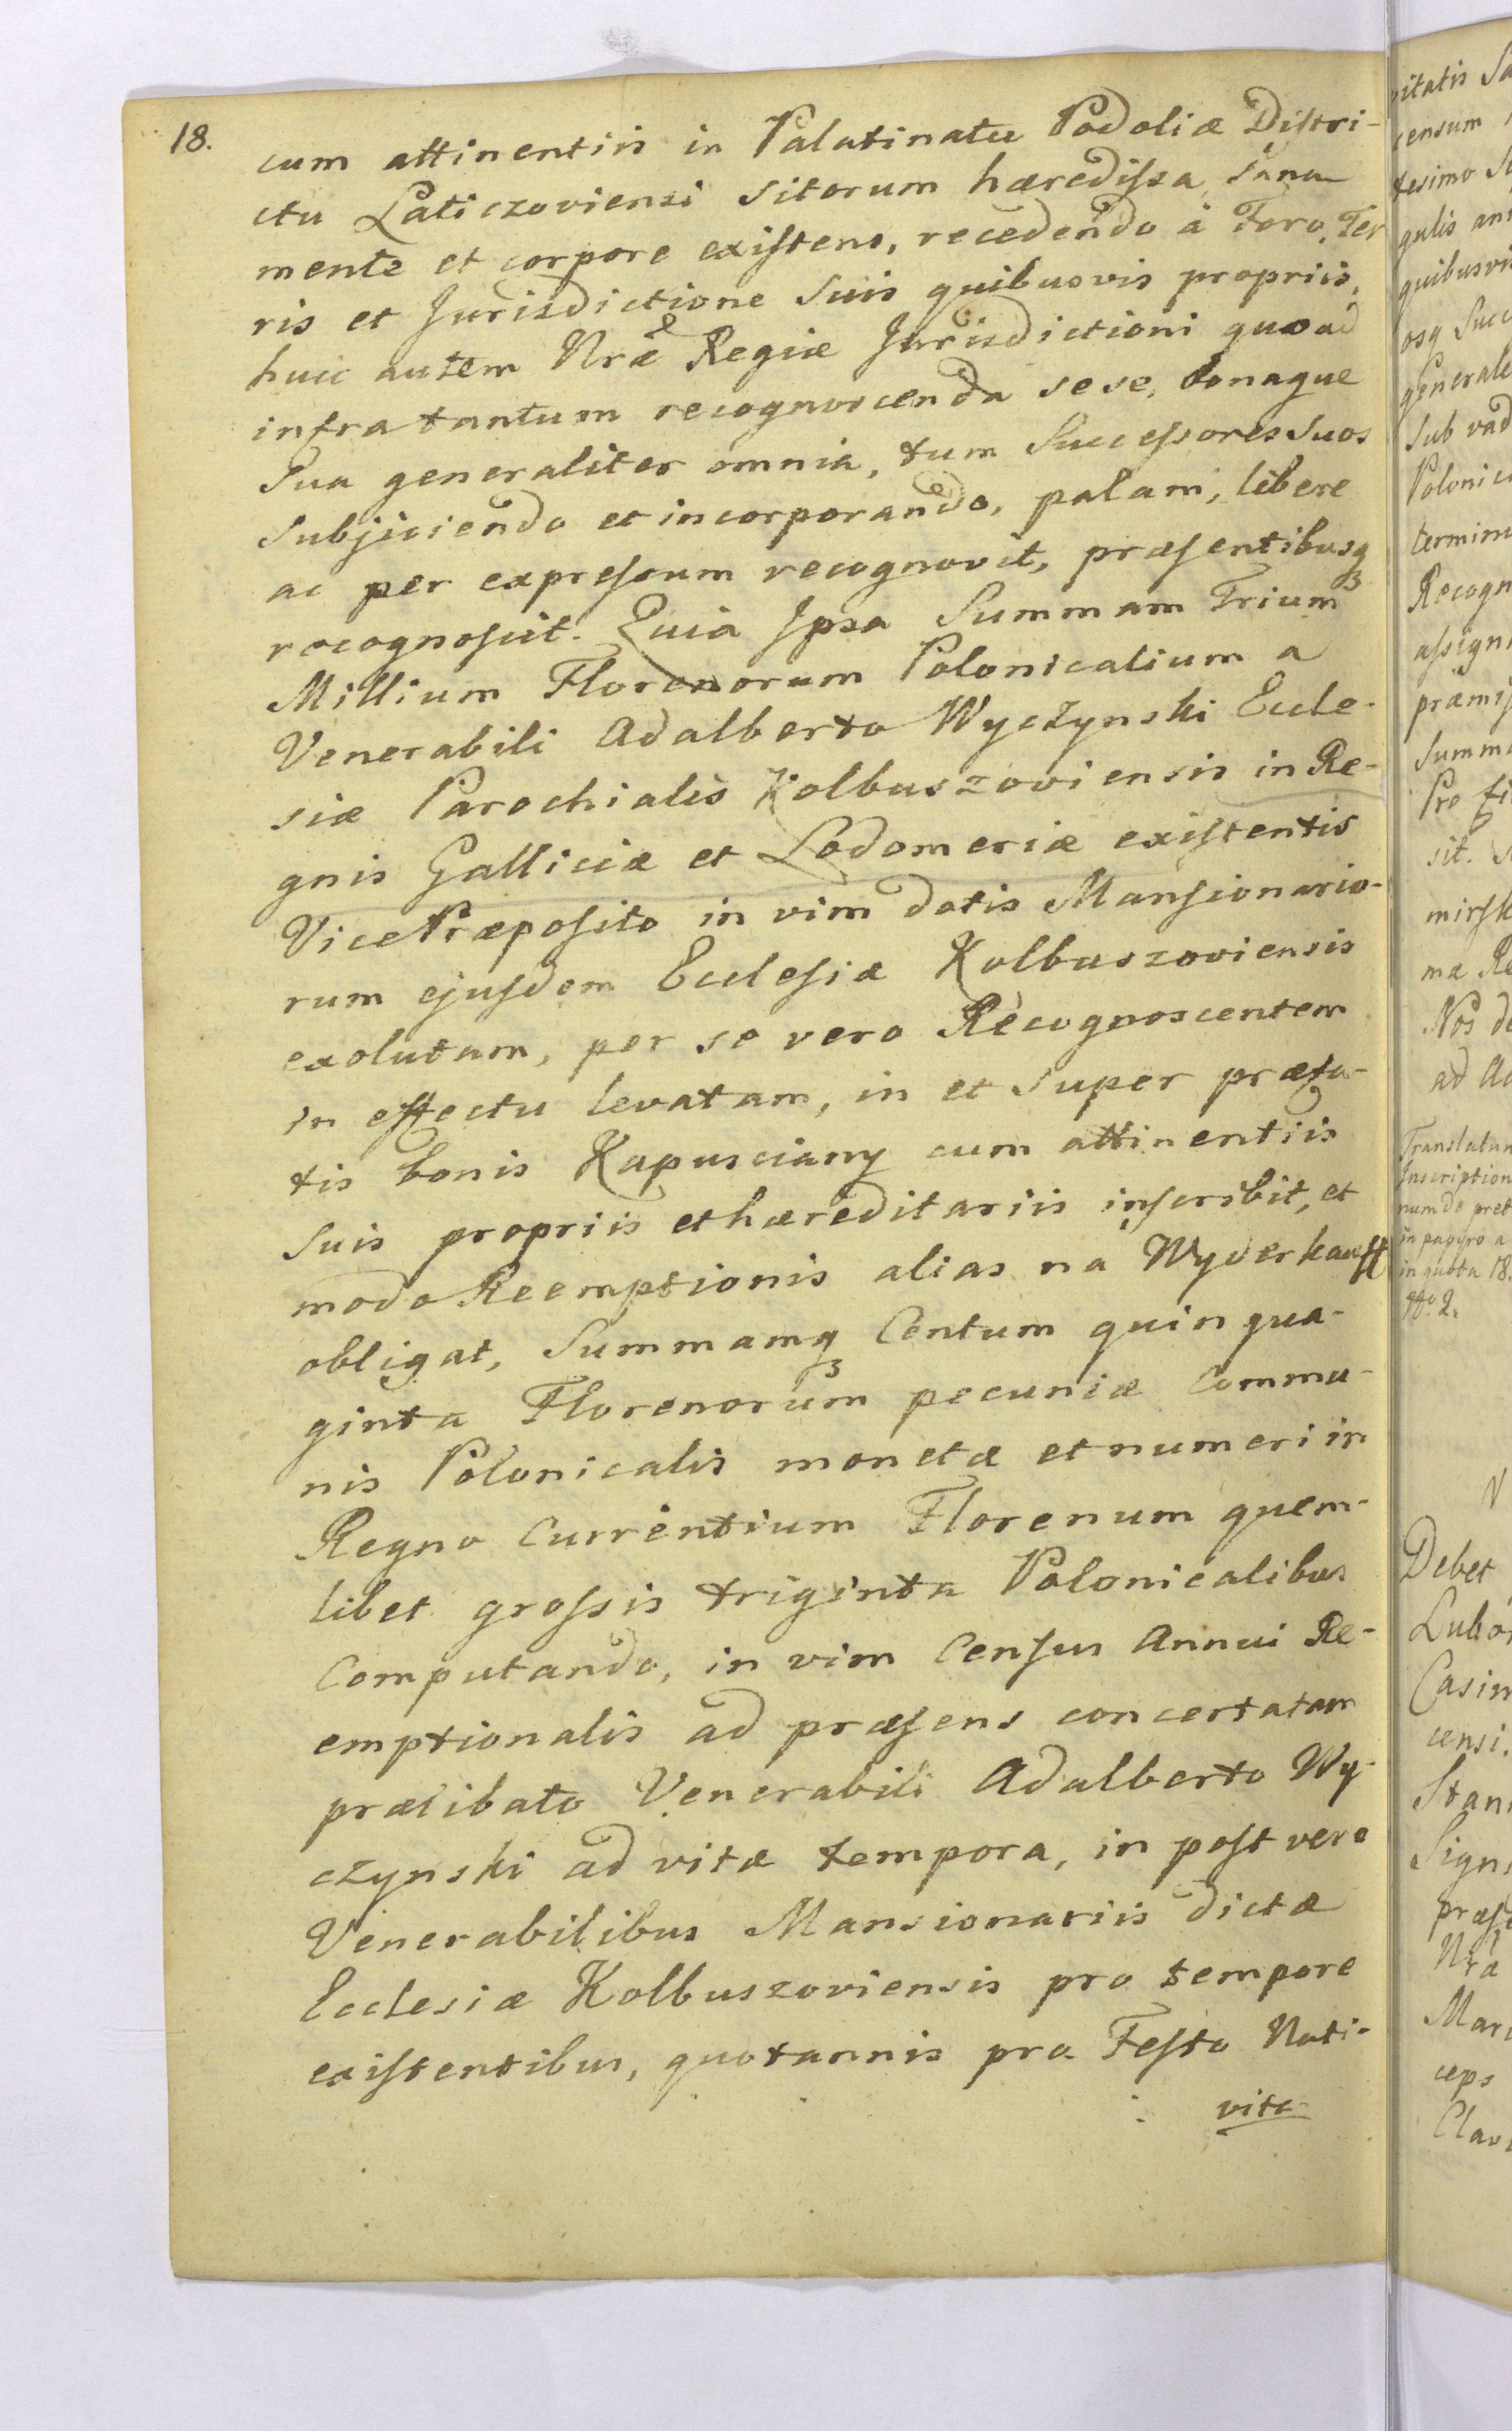 18.
cum attinentiis in Palatinatu Podoliæ Distri-
ctu Laticzoviensi Sitorum hæredissa, Sana
mente et corpore existens, recedendo à Foro, Ter
ris et Jurisdictione Suis quibusvis propriis,
huic autem Nræ Regiæ Jurisdictioni quoad
infra tantum recognoscenda sese, bonaque
Sua generaliter omnia, tum Successores Suos
Subjiciendo et incorporando, palam, libere
ac per expressum recognovit, præsentibusq
recognoscit. Quia Ipsa Summam Trium
Millium Florenorum Polonicalium a
Venerabili Adalberto Wyczynski Eccle-
siæ Parochialis Kolbuszoviensis in Re-
gnis Galliciæ et Lodomeriæ existentis
Vice Præposito in vim dotis Mansionario-
rum ejusdem Ecclesiæ Kolbuszoviensis
exolutam, per se vero Recognoscentem
in effectu levatam, in et super præfa-
tis bonis Kapusciany cum attinentiis
Suis propriis et hæreditariis inscribit, et
modo Reemptionis alias na Wyderkauff
obligat, Summamq Centum quinqua-
ginta Florenorum pecuniæ Commu-
nis Polonicalis monetæ et numeri in
Regno Currentium Florenum quem-
libet grossis triginta Polonicalibus
Computando, in vim Census Annui Re-
emptionalis ad præsens concertatam
prælibato Venerabili Adalberto Wy-
czynski ad vitæ tempora, in post vero
Venerabilibus Mansionariis dictæ
Ecclesiæ Kolbuszoviensis pro tempore
existentibus, quotannis pro Festo Nati-
vita-